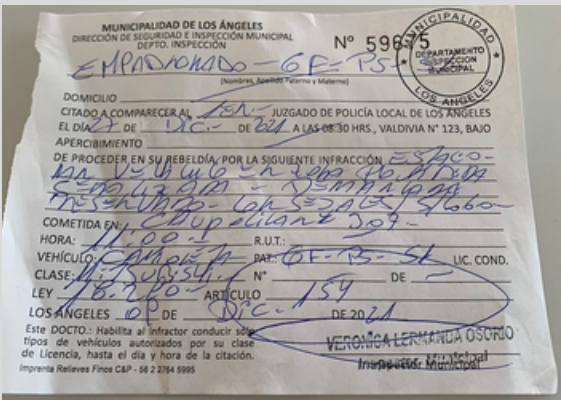 MUNICIPALIDAD DE LOS ÁNGELES
DIRECCIÓN DE SEGURIDAD E INSPECCIÓN MUNICIPAL
DEPTO. INSPECCIÓN
Nº
MUNICIPALIDAD
DEPARTAMENTO
INSPECCION
MUNICIPAL
LOS ANGELES
EMPADRONADO - GF-PS-
(Nombres, Apellido Paterno y Materno)
DOMICILIO
CITADO A COMPARECER AL 1ER- JUZGADO DE POLICÍA LOCAL DE LOS ÁNGELES
EL DÍA 27 DE DIC.- DE 2021 A LAS 08:30 HRS., VALDIVIA N° 123, BAJO
APERCIBIMIENTO
DE PROCEDER EN SU REBELDÍA, POR LA SIGUIENTE INFRACCIÓN ESTACIO-
NAR VEHICULO EN ZONA
DEMARCADA
RESERVADO
COMETIDA EN: Caupolican 309-
HORA: 11:00 - R.U.T.:
VEHÍCULO: CAMIONETA PAT.: GF-PS-51 LIC. COND.
CLASE: MITSUBISHI. N° DE
LEY ARTÍCULO 154
LOS ÁNGELES DE DIC. DE 2021
Este DOCTO.: Habilita al infractor conducir sólo
tipos de vehículos autorizados por su clase
de Licencia, hasta el día y hora de la citación.
VERONICA LERMANDA OSORIO
Inspector Municipal
Imprenta Relieves Finos C&P - 56 2 2764 5995